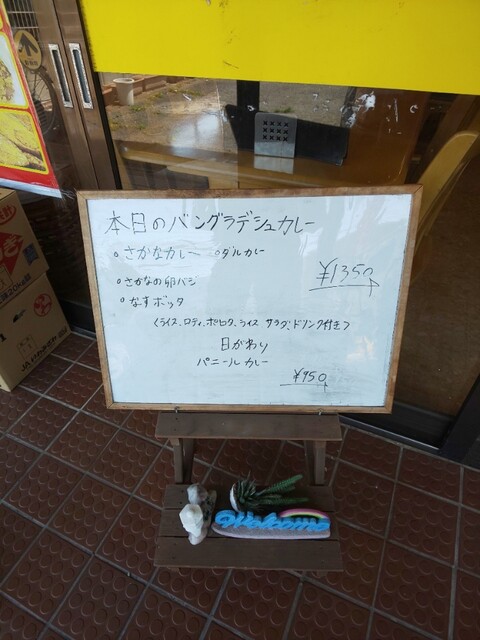 本日のバングラデシュカレー
・さかなカレー ・ダルカレー
・さかなの卵バジ
・なすボッタ
¥1350
くライス、ロティ、ポロタ、ライス サラダ、ドリンク付き>
日がわり
パニールカレー
¥950
Welcome